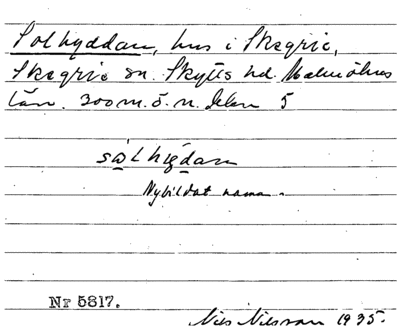 Solhyddan, hus i Skegrie,
Skegrie sn. Skytts hd. Malmöhus
län. 300 m. ö. n. 5
Nybildat namn.
Nr 5817.
Nils Nilsson 1935.